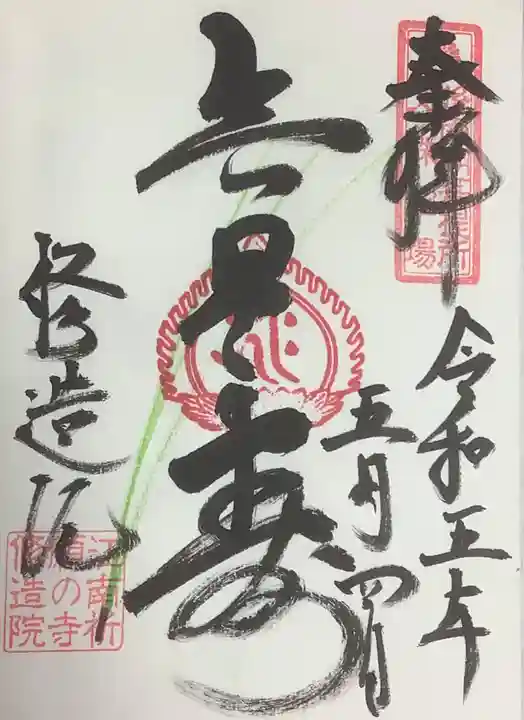 奉拝
令和五年
五月四日
無量寿
修造院
江南祈
願の寺
修造院